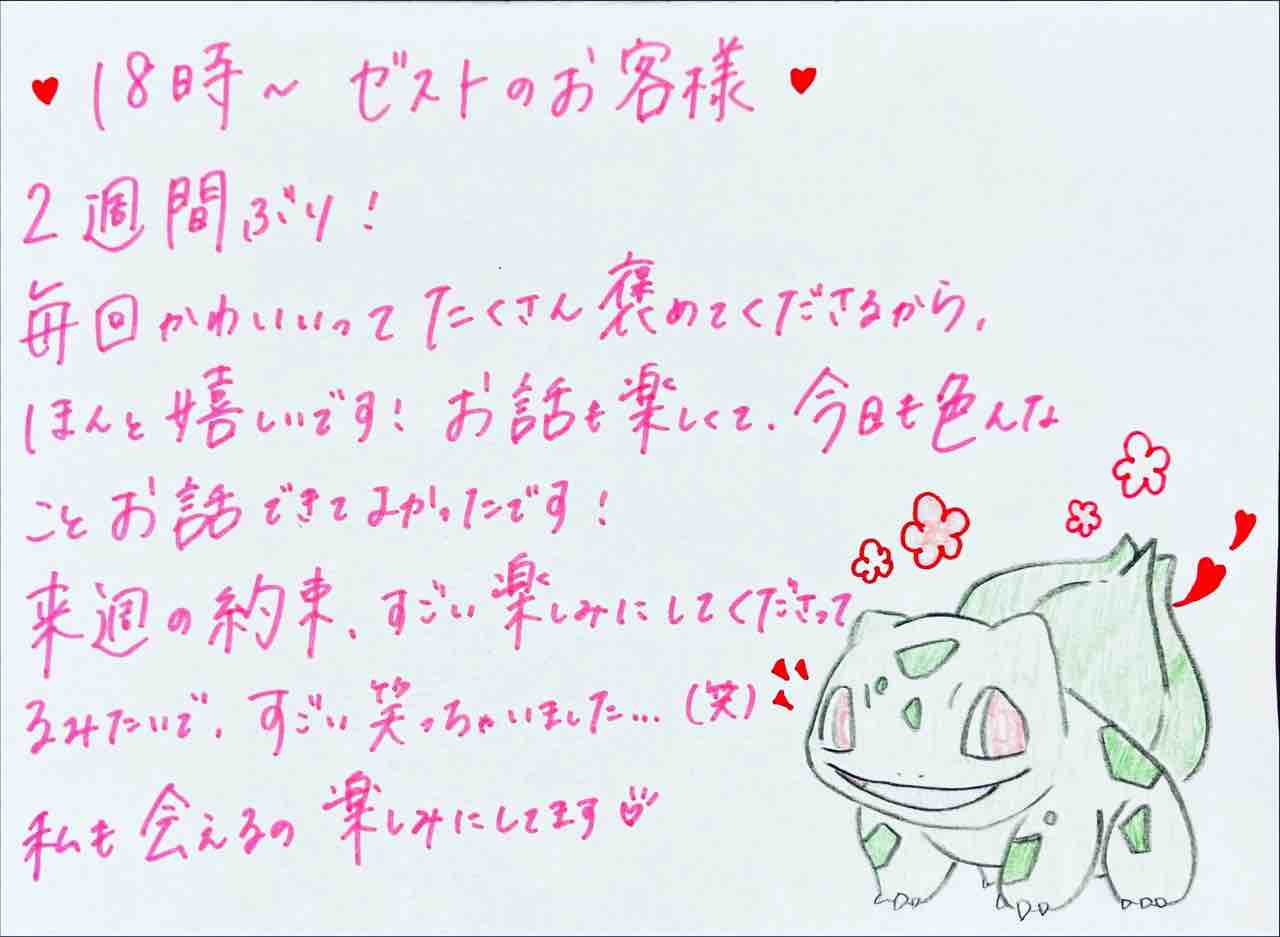 ♥ 18時～ ゼストのお客様 ♥
2週間ぶり！
毎回かわいいってたくさん褒めてくださるから、
ほんと嬉しいです！お話も楽しくて、今日も色んな
ことお話できてよかったです！
来週の約束、すごい楽しみにしてくださって
るみたいで、すごい笑っちゃいました…(笑)
私も会えるの楽しみにしてます